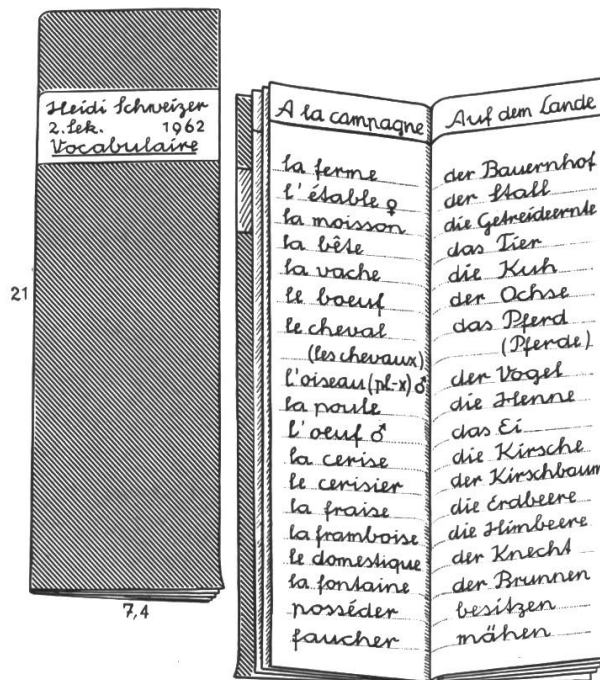 Heidi Schweizer
2. Sek. 1962
Vocabulaire
21
7,4
A la campagne
la ferme
l'étable ♀
la moisson
la bête
la vache
le boeuf
le cheval
(les chevaux)
l'oiseau (pl-x) ♂
la poule
l'oeuf ♂
la cerise
le cerisier
la fraise
la framboise
le domestique
la fontaine
posséder
faucher
Auf dem Lande
der Bauernhof
der Stall
die Getreideernte
das Tier
die Kuh
der Ochse
das Pferd
(Pferde)
der Vogel
die Henne
das Ei
die Kirsche
der Kirschbaum
die Erdbeere
die Himbeere
der Knecht
der Brunnen
besitzen
mähen